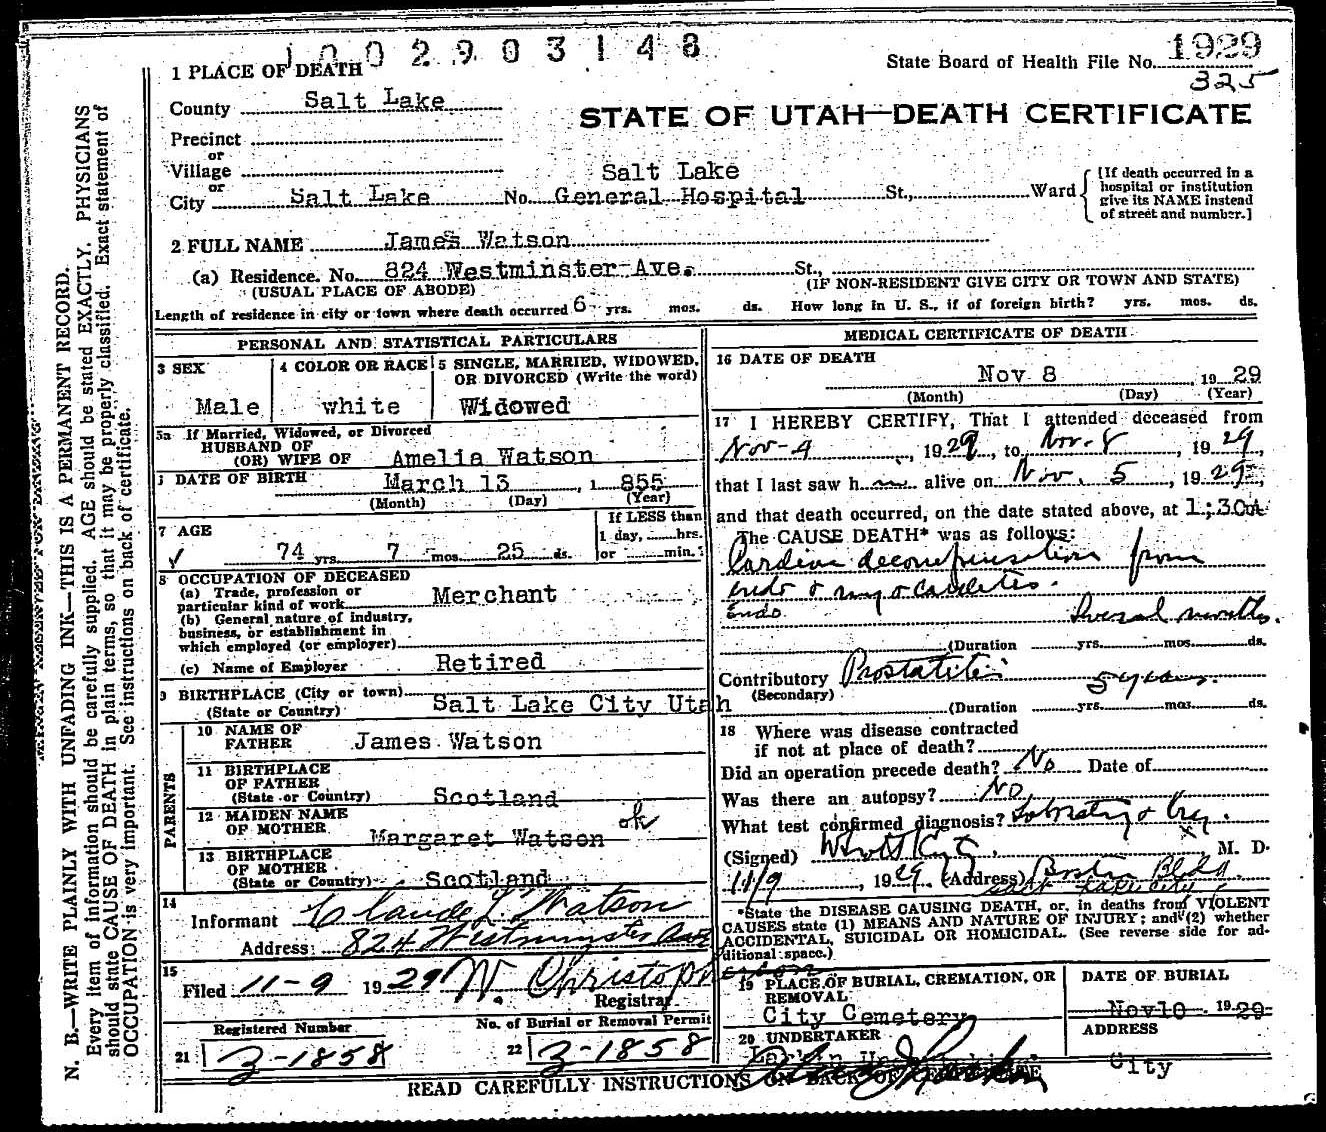 1002903148
State Board of Health File No. 1929
325
1 PLACE OF DEATH
County Salt Lake
STATE OF UTAH—DEATH CERTIFICATE
Precinct
or
Village
or
City Salt Lake No. Salt Lake General Hospital St., Ward
[If death occurred in a
hospital or institution
give its NAME instead
of street and number.]
2 FULL NAME James Watson
(a) Residence. No. 824 Westminster Ave. St.,
(USUAL PLACE OF ABODE) (IF NON-RESIDENT GIVE CITY OR TOWN AND STATE)
Length of residence in city or town where death occurred 6 yrs. mos. ds. How long in U. S., if of foreign birth? yrs. mos. ds.
PERSONAL AND STATISTICAL PARTICULARS
3 SEX
Male
4 COLOR OR RACE
white
5 SINGLE, MARRIED, WIDOWED,
OR DIVORCED (Write the word)
Widowed
5a If Married, Widowed, or Divorced
HUSBAND OF
(OR) WIFE OF Amelia Watson
DATE OF BIRTH March 13, 1 855
(Month) (Day) (Year)
7 AGE
74 yrs. 7 mos. 25 ds.
If LESS than
1 day, hrs.
or min.
8 OCCUPATION OF DECEASED
(a) Trade, profession or
particular kind of work Merchant
(b) General nature of industry,
business, or establishment in
which employed (or employer)
(c) Name of Employer Retired
9 BIRTHPLACE (City or town)
(State or Country) Salt Lake City Utah
PARENTS
10 NAME OF
FATHER James Watson
11 BIRTHPLACE
OF FATHER
(State or Country) Scotland
12 MAIDEN NAME
OF MOTHER Margaret Watson ok
13 BIRTHPLACE
OF MOTHER
(State or Country) Scotland
14
Informant Claude L Watson
Address: 824 Westminster Ave
15
Filed 11-9 1929 W. Christoph
Registrar
Registered Number
21 3-1858
No. of Burial or Removal Permit
22 3-1858
MEDICAL CERTIFICATE OF DEATH
16 DATE OF DEATH
Nov 8, 1929
(Month) (Day) (Year)
17 I HEREBY CERTIFY, That I attended deceased from
Nov-4, 1929, to Nov-8, 1929,
that I last saw h im alive on Nov. 5, 1929,
and that death occurred, on the date stated above, at 1:30A
The CAUSE DEATH* was as follows:
Cardiac decompensation from
endo & myocarditis.
Endo. Several months.
(Duration yrs. mos. ds.
Contributory Prostatitis 5 years.
(Secondary)
(Duration yrs. mos. ds.
18 Where was disease contracted
if not at place of death?
Did an operation precede death? No Date of
Was there an autopsy? No
What test confirmed diagnosis? Laboratory &
(Signed) M. D.
11/9, 1929 (Address) Boston Bldg
Salt Lake City
*State the DISEASE CAUSING DEATH, or, in deaths from VIOLENT
CAUSES state (1) MEANS AND NATURE OF INJURY; and (2) whether
ACCIDENTAL, SUICIDAL OR HOMICIDAL. (See reverse side for ad-
ditional space.)
19 PLACE OF BURIAL, CREMATION, OR
REMOVAL
City Cemetery
DATE OF BURIAL
Nov 10 1929
20 UNDERTAKER
ADDRESS
City
READ CAREFULLY INSTRUCTIONS ON BACK OF CERTIFICATE
N. B.—WRITE PLAINLY WITH UNFADING INK—THIS IS A PERMANENT RECORD.
Every item of information should be carefully supplied. AGE should be stated EXACTLY. PHYSICIANS
should state CAUSE OF DEATH in plain terms, so that it may be properly classified. Exact statement of
OCCUPATION is very important. See instructions on back of certificate.